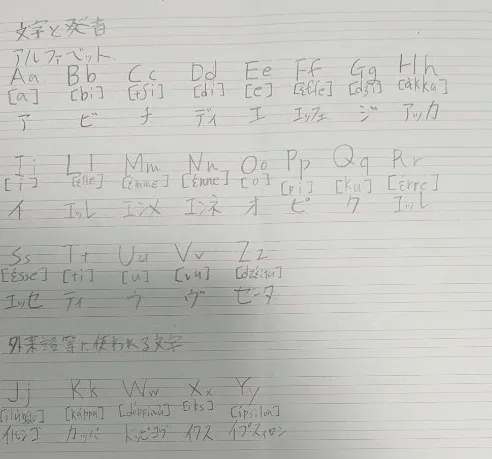 文字と発音
アルファベット
Aa Bb Cc Dd Ee Ff Gg Hh
[a] [bi] [tʃi] [di] [e] [έffe] [dʒi] [ákka]
ア ビ チ ディ エ エッフェ ジ アッカ
Ii Ll Mm Nn Oo Pp Qq Rr
[i] [έlle] [έmme] [έnne] [o] [pi] [ku] [έrre]
イ エッレ エンメ エンネ オ ピ ク エッレ
Ss Tt Uu Vv Zz
[έsse] [ti] [u] [vu]
エッセ ティ ウ ヴ ゼータ
外来語等に使われる文字
Jj Kk Ww Xx Yy
[káppa] [iks] [ípsilon]
カッパ イクス イプスィロン